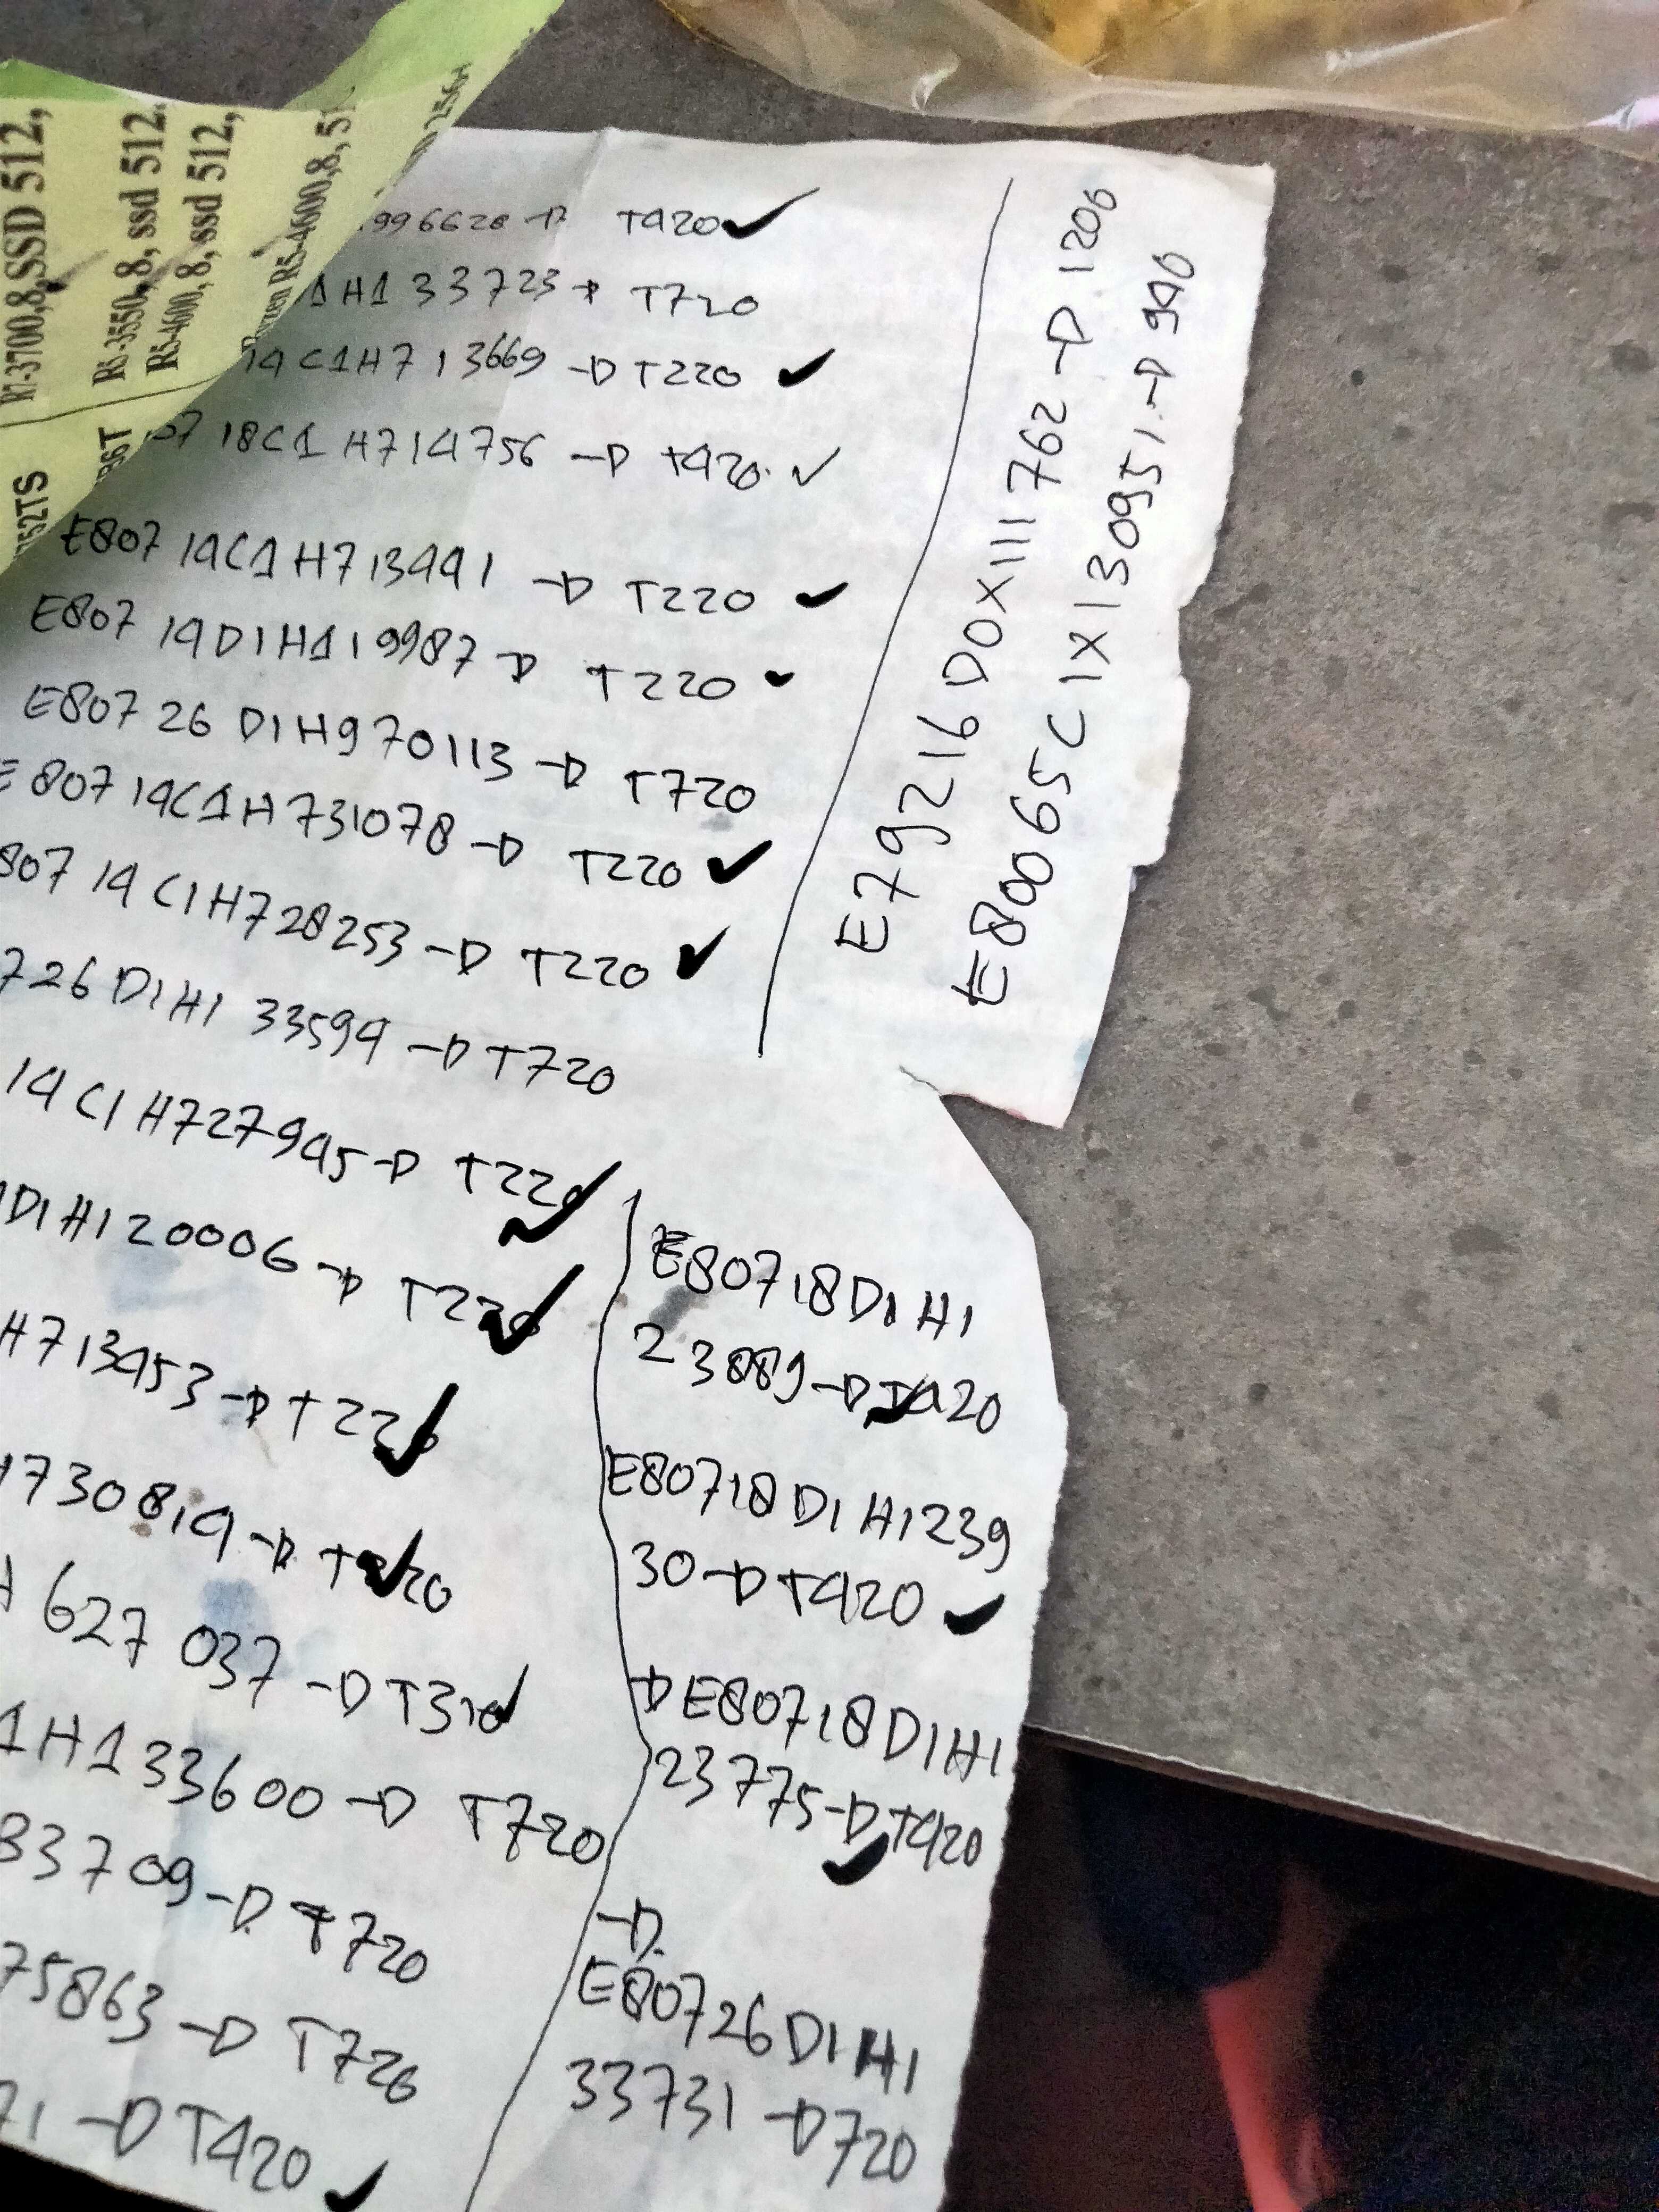 R7-3700,8,SSD 512,
R5-3550,8, ssd 512,
R5-4600, 8, ssd 512,
R5-4600,8, 51
256
52TS
996628 -D T420 ✓
1H1 33723 -D T720
14C1H713669 -D T220 ✓
07 18C1 H714756 -D T420. ✓
E807 14C1H713441 -D T220 ✓
E807 14D1H119987 -D T220 ✓
E807 26 D1H970113 -D T720
E807 14C1H731078 -D T220 ✓
807 14C1H728253 -D T220 ✓
726 D1H1 33594 -D T720
14C1H727945 -D T220 ✓
D1H120006 -D T220 ✓
H713453 -D T220 ✓
1730819 -D T220 ✓
627 037 -D T320 ✓
1H133600 -D T720
33709 -D T720
75863 -D T720
71 -D T420 ✓
E79216D0X111762 -D 1206
E80065C1X130951.-D 940
E80718D1H1
23889 -D T420
E80718D1H1239
30 -D T420 ✓
-D E80718D1H1
23775 -D T420
✓
-D.
E80726D1H1
33731 -D 720